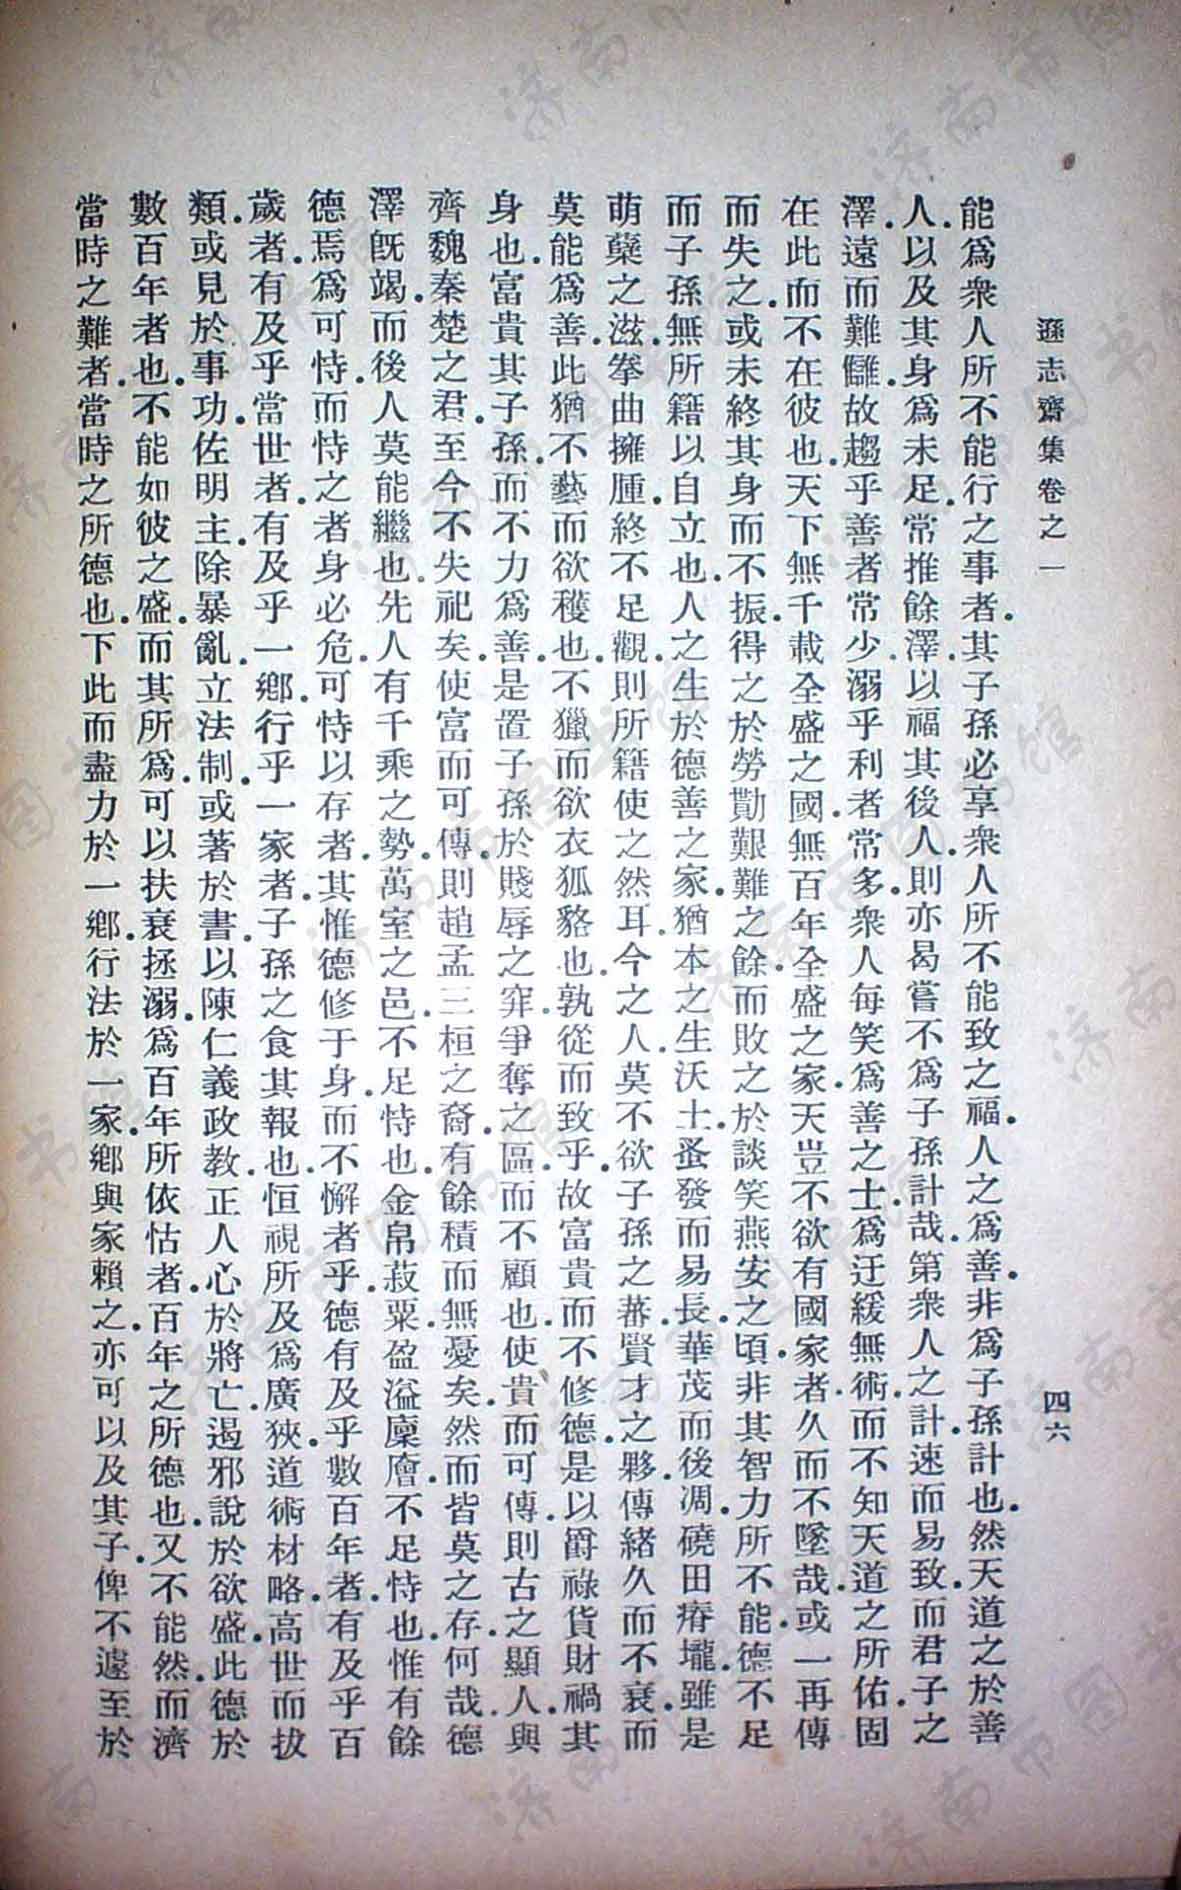 遜志齋集卷之一
四六
能爲衆人所不能行之事者.其子孫必享衆人所不能致之福.人之爲善.非爲子孫計也.然天道之於善
人.以及其身爲未足.常推餘澤.以福其後人.則亦曷嘗不爲子孫計哉.第衆人之計速而易致.而君子之
澤.遠而難讎.故趨乎善者常少.溺乎利者常多.衆人每笑爲善之士.爲迂緩無術.而不知天道之所佑.固
在此而不在彼也.天下無千載全盛之國.無百年全盛之家.天豈不欲有國家者.久而不墜哉.或一再傳
而失之.或未終其身而不振.得之於勞勩艱難之餘.而敗之於談笑燕安之頃.非其智力所不能.德不足
而子孫無所籍以自立也.人之生於德善之家.猶本之生沃土.蚤發而易長.華茂而後凋.磽田瘠壠.雖是
萌蘖之滋.拳曲擁腫.終不足觀.則所籍使之然耳.今之人.莫不欲子孫之蕃.賢才之夥.傳緒久而不衰.而
莫能爲善.此猶不藝而欲穫也.不獵而欲衣狐貉也.孰從而致乎.故富貴而不修德.是以爵祿貨財.禍其
身也.富貴其子孫.而不力爲善.是置子孫於賤辱之穽.爭奪之區而不顧也.使貴而可傳.則古之顯人.與
齊魏秦楚之君.至今不失祀矣.使富而可傳.則趙孟三桓之裔.有餘積而無憂矣.然而皆莫之存.何哉.德
澤旣竭.而後人莫能繼也.先人有千乘之勢.萬室之邑.不足恃也.金帛菽粟.盈溢廩廥.不足恃也.惟有餘
德焉爲可恃.而恃之者身必危.可恃以存者.其惟德修于身.而不懈者乎.德有及乎數百年者.有及乎百
歲者.有及乎當世者.有及乎一鄉.行乎一家者.子孫之食其報也.恒視所及爲廣狹.道術材略.高世而拔
類.或見於事功.佐明主.除暴亂.立法制.或著於書.以陳仁義政教.正人心於將亡.遏邪說於欲盛.此德於
數百年者也.不能如彼之盛.而其所爲.可以扶衰拯溺.爲百年所依怙者.百年之所德也.又不能然.而濟
當時之難者.當時之所德也.下此而盡力於一鄉.行法於一家.鄉與家賴之.亦可以及其子.俾不遽至於